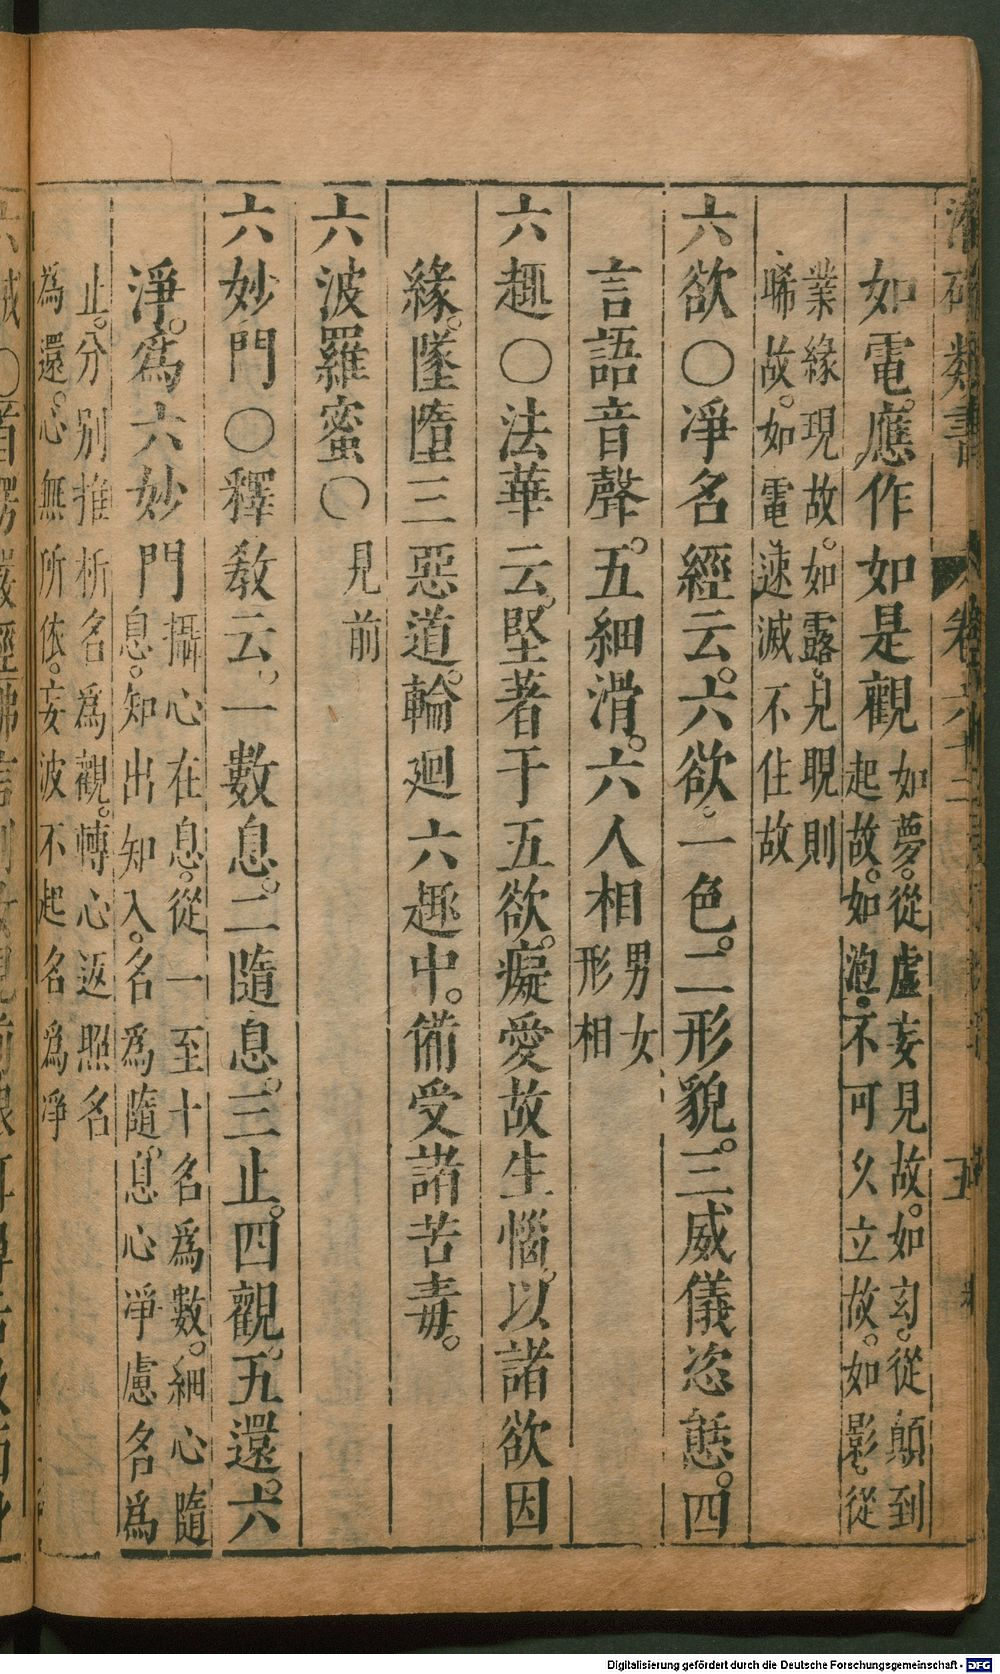 如電。應作如是觀 如夢。從虛妄見故。如幻。從顛到
起故。如泡。不可久立故。如影。從
業緣現故。如露。見晛則
晞故。如電。速滅不住故
六欲〇淨名經云。六欲。一色。二形貌。三威儀恣態。四
言語音聲。五細滑。六人相 男女
形相
六趣〇法華云。堅著于五欲。癡愛故生惱。以諸欲因
緣。墜墮三惡道。輪廻六趣中。備受諸苦毒。
六波羅蜜〇 見前
六妙門〇釋教云。一數息。二隨息。三止。四觀。五還。六
淨。為六妙門 攝心在息。從一至十名為數。細心隨
息。知出知入。名為隨。息心凈慮名為
止。分別推析名為觀。轉心返照名
為還。心無所依。妄波不起名為凈
Digitalisierung gefördert durch die Deutsche Forschungsgemeinschaft - DFG